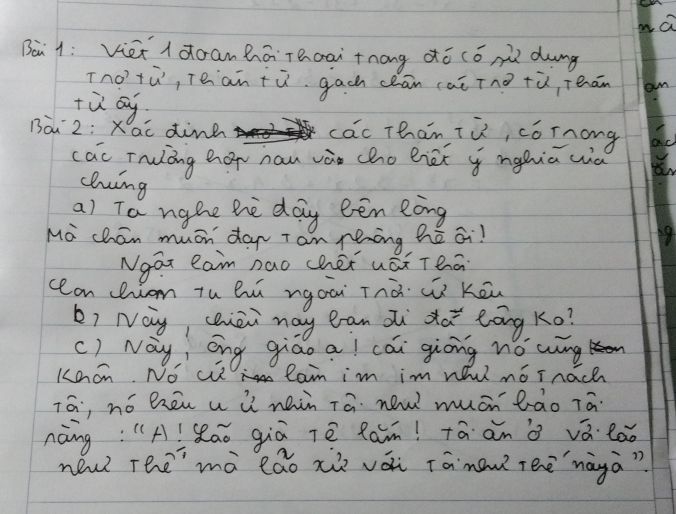 Bài 1: Viết 1 đoạn hội thoại trong đó có sử dụng
trợ từ, thán từ. gạch chân các trợ từ, thán
từ ấy.
Bài 2: Xác định các thán từ, có trong
các trường hợp sau và cho biết ý nghĩa của
chúng
a) Ta nghe hè dậy bên lòng
Mà chân muốn đạp tan phòng hè ôi!
Ngột làm sao chết uất thôi
Con chim tu hú ngoài trời cứ kêu
b) Này, chiều nay bạn đi đá bóng ko?
c) Này, ông giáo ạ! cái giống nó cũng
khôn. Nó cứ làm im im như nó trách
tôi, nó kêu ư ử nhìn tôi như muốn bảo tôi
rằng: "A! Lão già tệ lắm! tôi ăn ở với lão
như thế mà lão xử với tôi như thế này à".